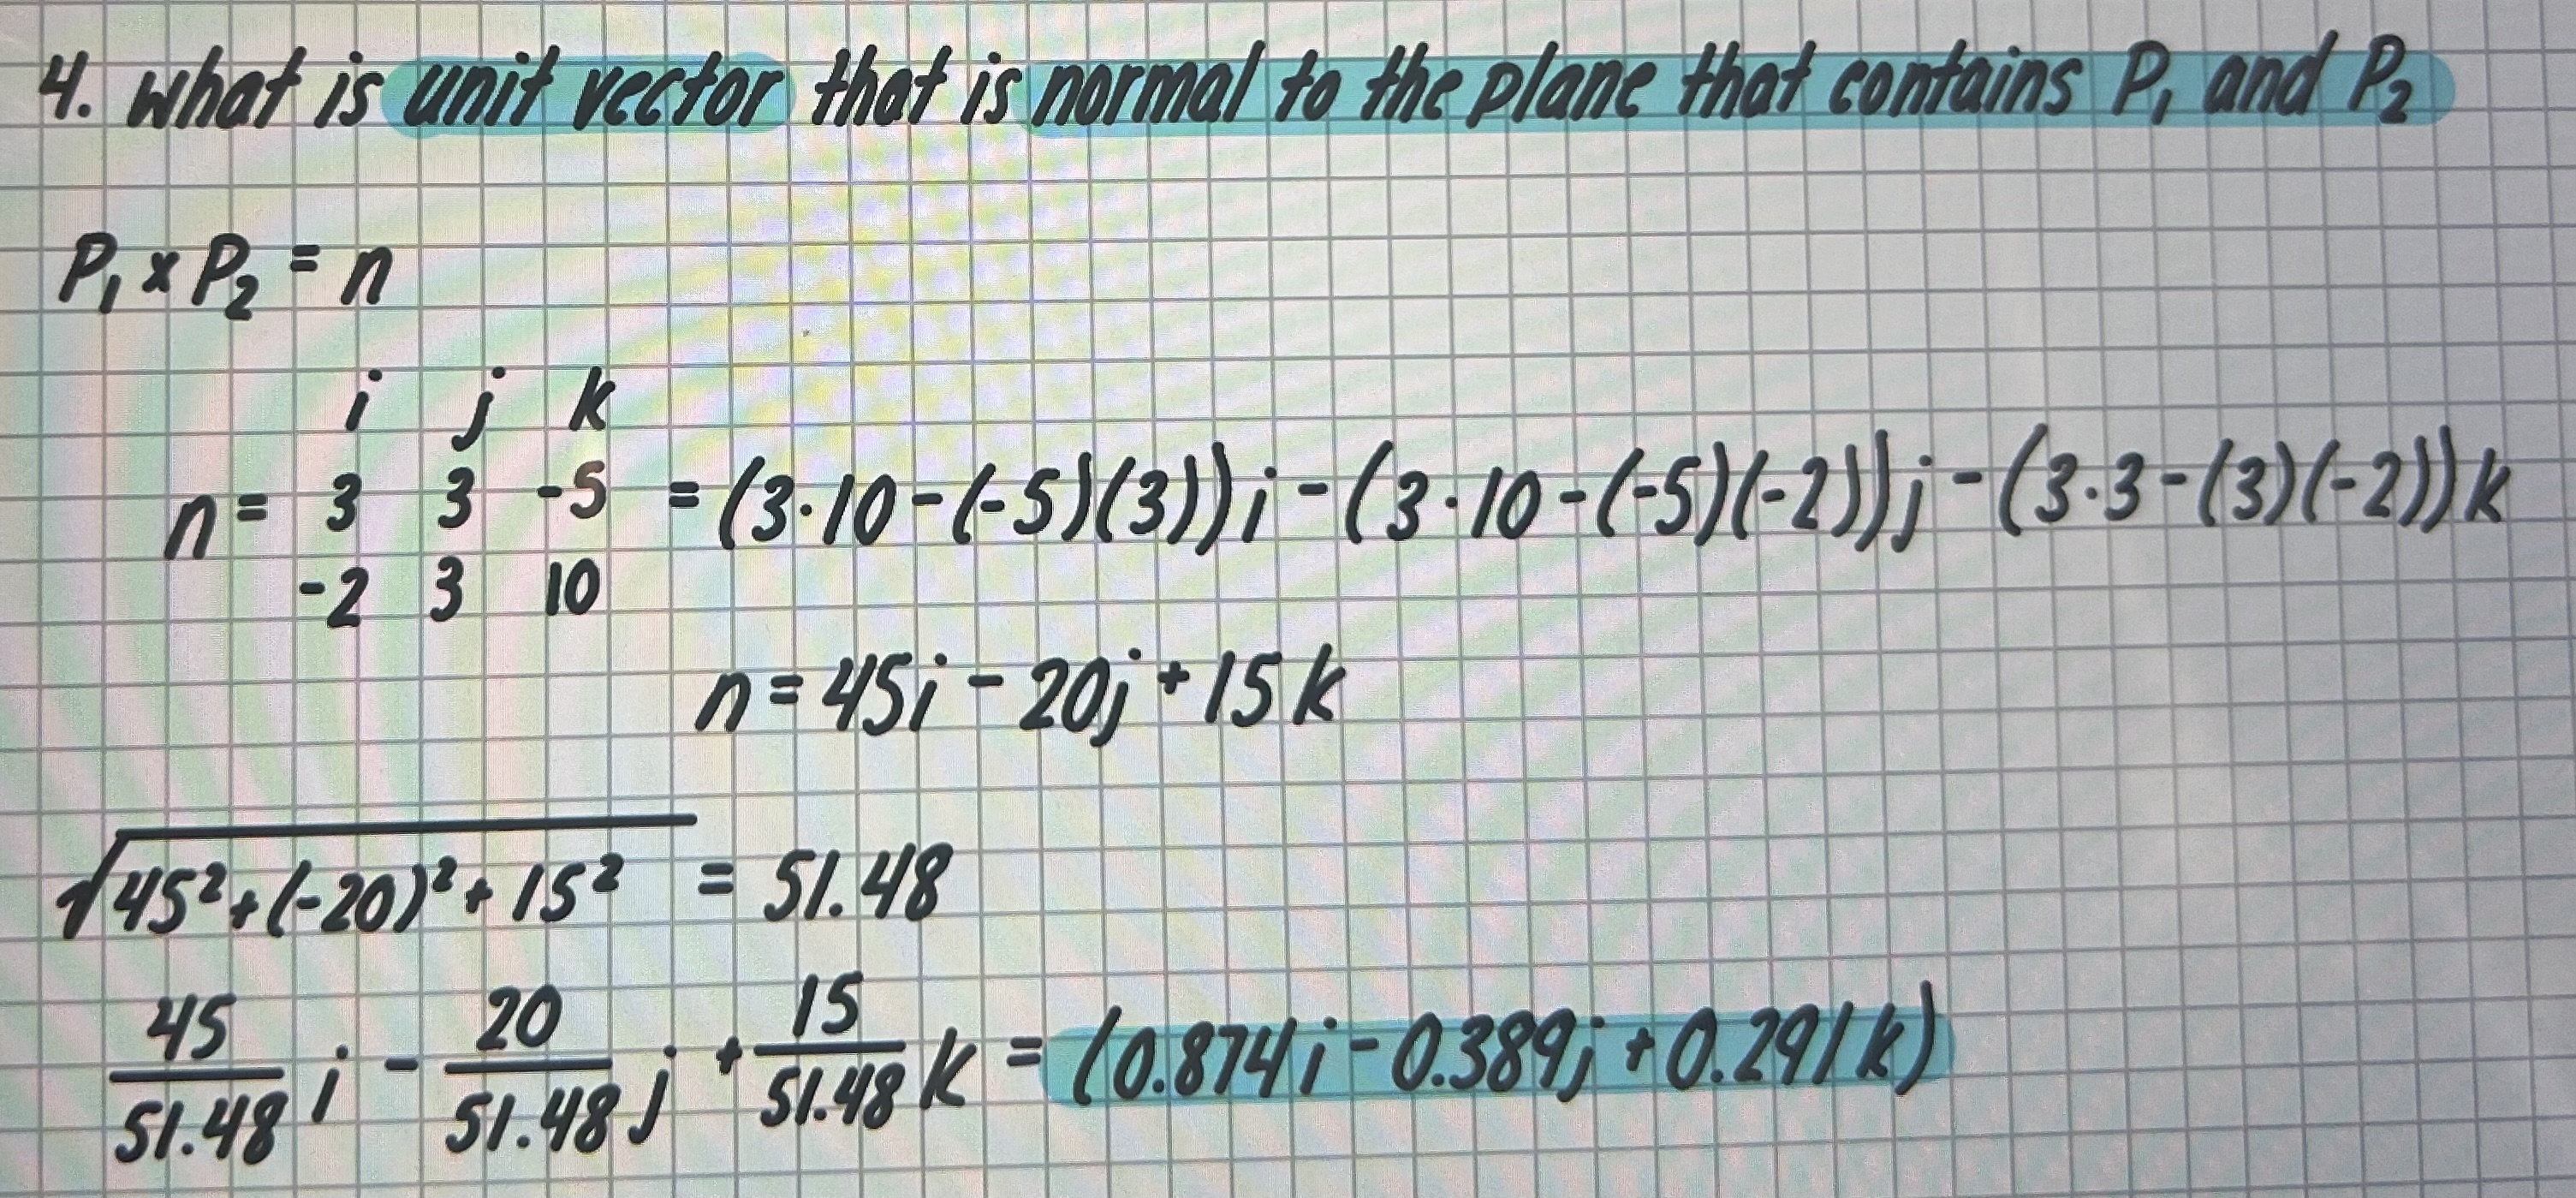 4. What is unit vector that is normal to the plane that contains P₁ and P₂
P₁ x P₂ = n
i j k
n = 3 3 -5 = (3·10-(-5)(3))i - (3·10-(-5)(-2))j - (3·3-(3)(-2))k
-2 3 10
n = 45i - 20j + 15k
√45² + (-20)² + 15² = 51.48
45/51.48 i - 20/51.48 j + 15/51.48 k = (0.874i - 0.389j + 0.291k)